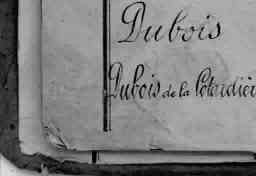 Dubois
Dubois de la Potardièr